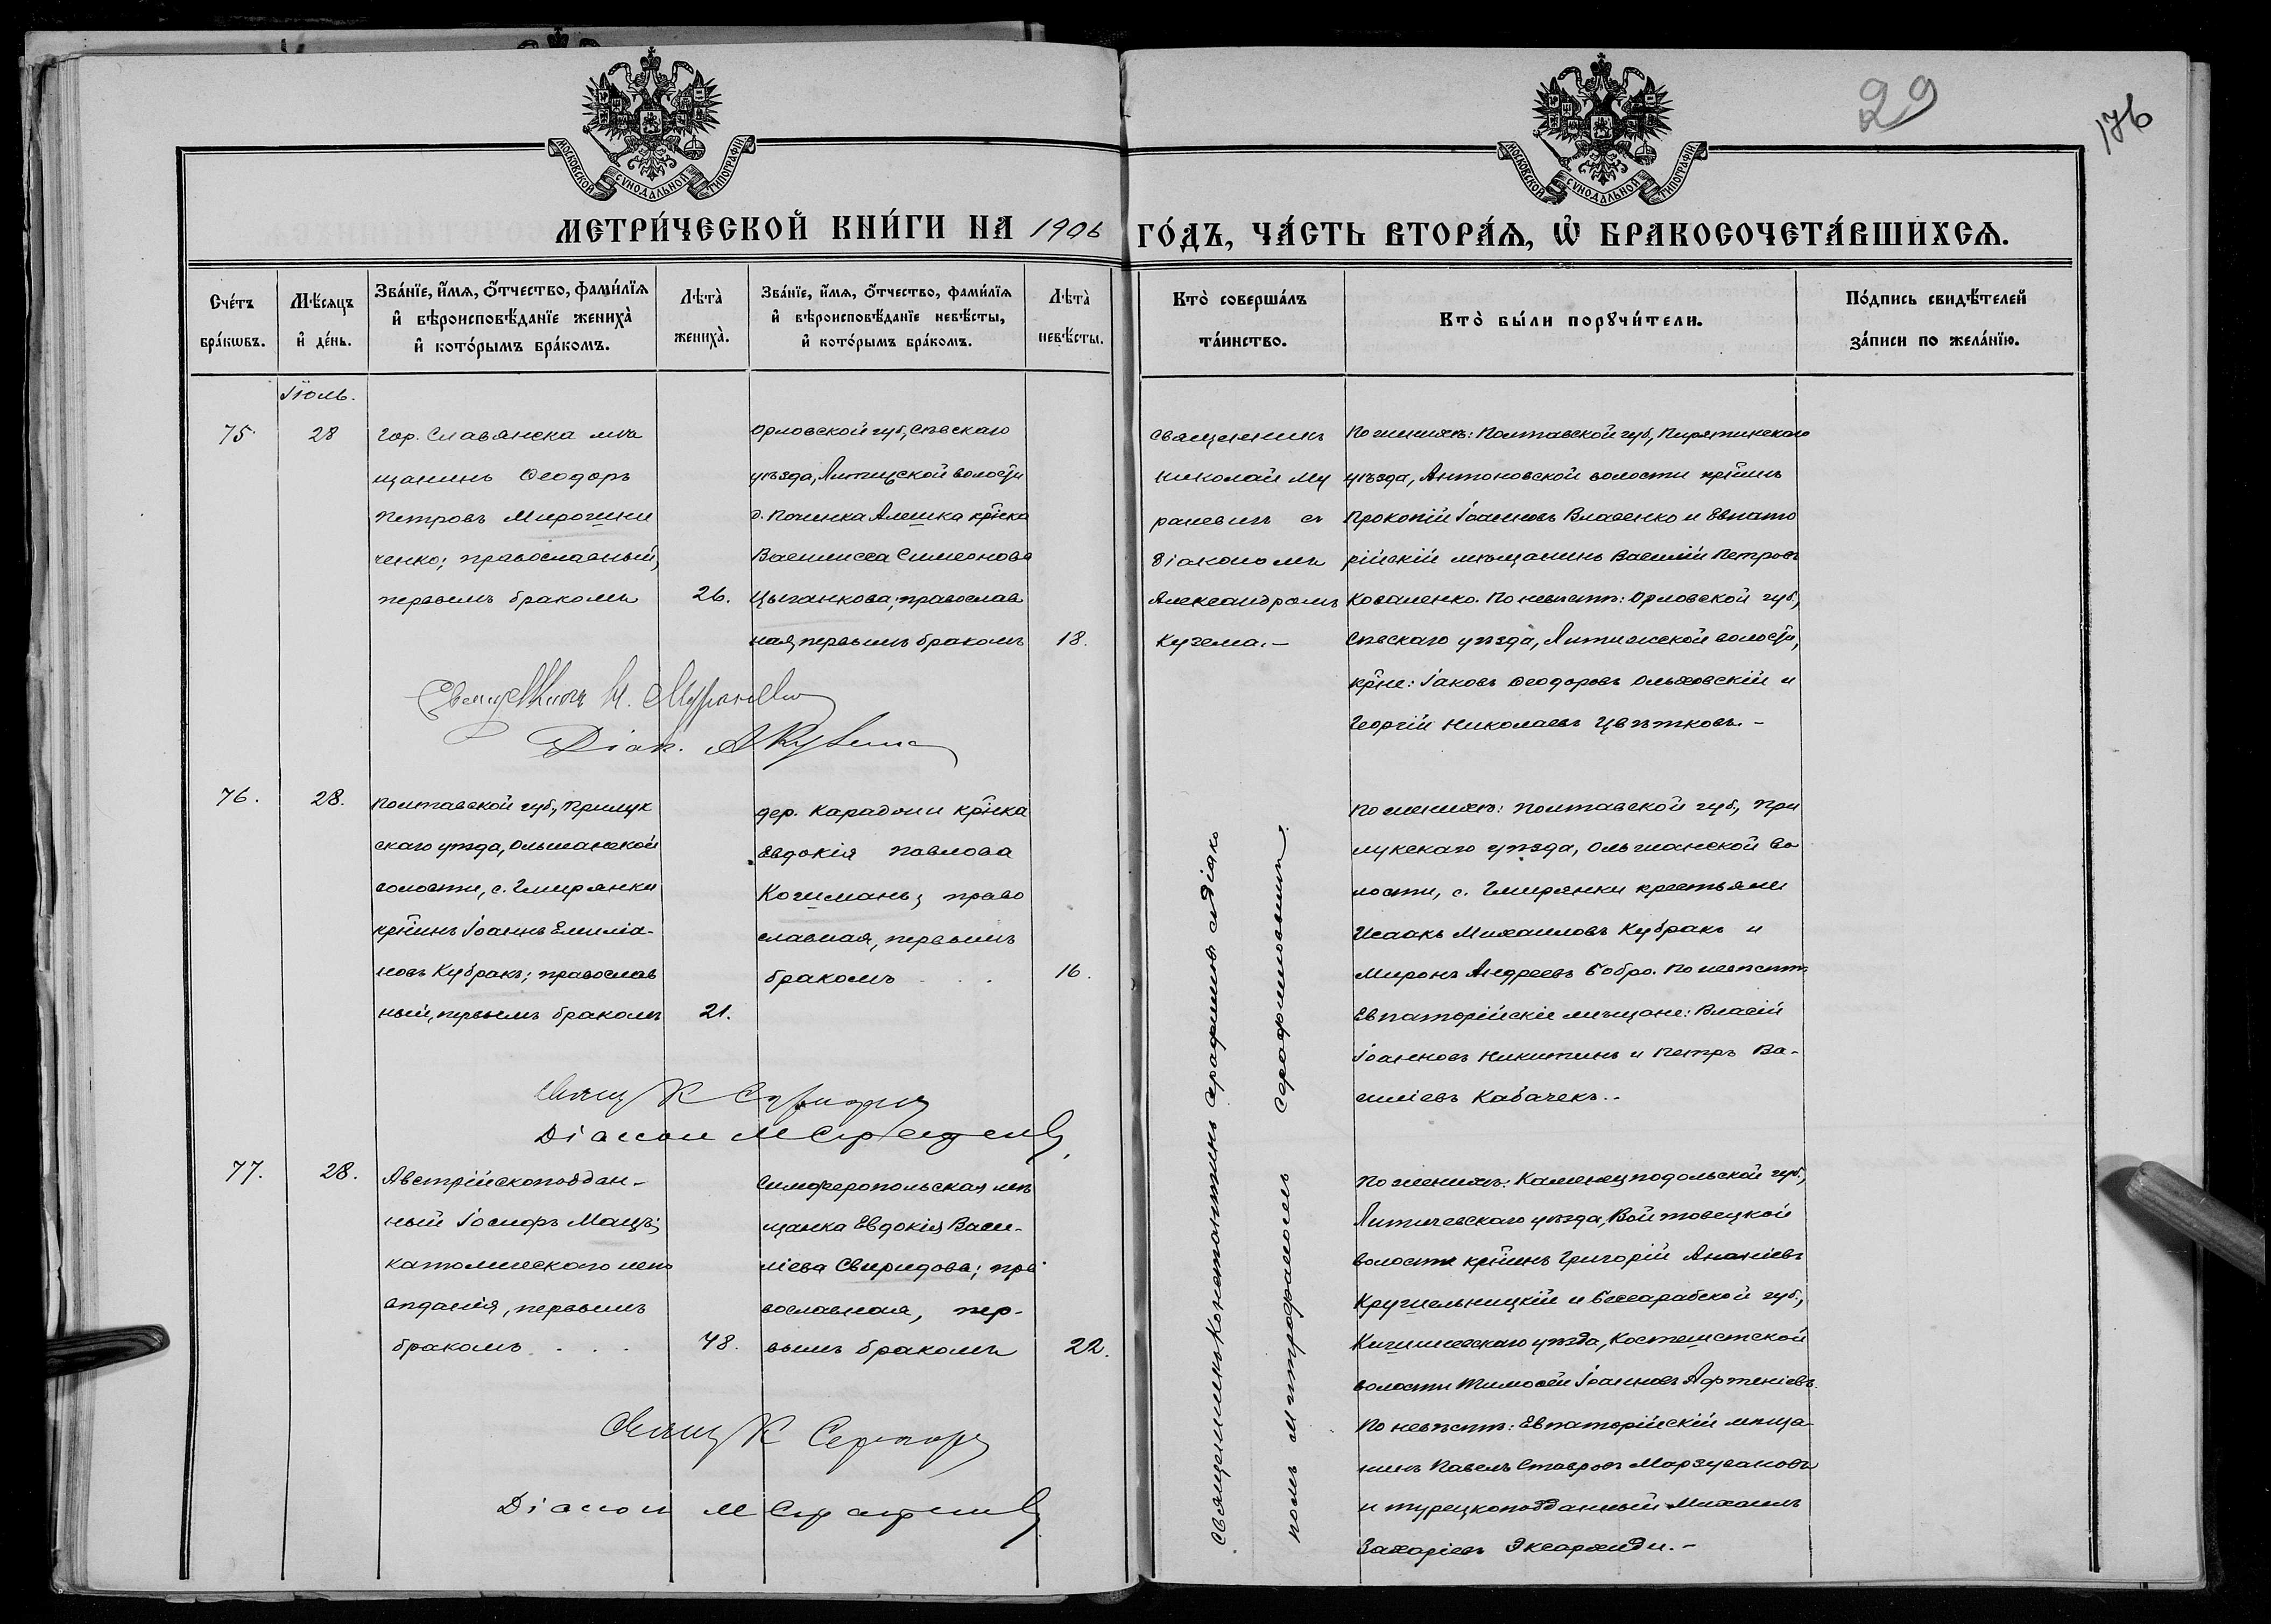 29
176
МОСКОВСКОЙ СѴНОДАЛЬНОЙ ТИПОГРАФІИ
МОСКОВСКОЙ СѴНОДАЛЬНОЙ ТИПОГРАФІИ
МЕТРИ́ЧЕСКОЙ КНИ́ГИ НА 1906 ГО́ДЪ, ЧА́СТЬ ВТОРА́Ѧ, Ѽ БРАКОСОЧЕТА́ВШИХСѦ.
Сче́тъ бра́кѡвъ.
Мѣ́сѧцъ и҆ де́нь.
Зва́нїе, и҆́мѧ, о҆́тчество, фами́лїѧ и҆ вѣроисповѣ́данїе жениха̀ и҆ кото́рымъ бра́комъ.
Лѣта̀ жениха̀.
Зва́нїе, и҆́мѧ, о҆́тчество, фами́лїѧ и҆ вѣроисповѣ́данїе невѣ́сты, и҆ кото́рымъ бра́комъ.
Лѣта̀ невѣ́сты.
Кто̀ соверша́лъ та́инство.
Кто̀ бы́ли порꙋчи́тели.
По́дпись свидѣ́телей за́писи по жела́нїю.
Іюль.
75.
28
Гор. Славянска мѣ
щанинъ Ѳеодоръ
Петровъ Мирошни
ченко; православный,
первымъ бракомъ
26.
Орловской губ., Сѣвскаго
уѣзда, Литижской волости
д. Починка Алешка кр-нка
Василисса Симеонова
Цыганкова; православ
ная, первымъ бракомъ
18.
Священникъ
Николай Му
раневичъ съ
діакономъ
Александромъ
Кузема.-
По женихѣ: Полтавской губ., Пирятинскаго
уѣзда, Антоновской волости кр-нинъ
Прокопій Іоанновъ Власенко и Евпато
рійскій мѣщанинъ Василій Петровъ
Коваленко. По невѣстѣ: Орловской губ.,
Сѣвскаго уѣзда, Литижской волости,
кр-не: Іаковъ Ѳеодоровъ Ольховскій и
Георгій Николаевъ Цвѣтковъ.-
Священникъ Н. Мураневичъ
Діак. А Кузема
76.
28.
Полтавской губ., Прилук
скаго уѣзда, Ольшанской
волости, с. Гмирянки
кр-нинъ Іоаннъ Емилiа-
новъ Кубракъ; православ
ный, первымъ бракомъ
21.
дер. Караджи кр-нка
Евдокія Павлова
Кошмань; право
славная, первымъ
бракомъ . . .
16.
Священникъ Константинъ Серафимовъ съ діако
помъ Митрофаномъ Серафимовымъ.
По женихѣ: Полтавской губ., При
лукскаго уѣзда, Ольшанской во
лости, с. Гмирянки крестьяне
Исаакъ Михаиловъ Кубракъ и
Миронъ Андреевъ Бобро. По невѣстѣ
Евпаторійскіе мѣщане: Власій
Іоанновъ Никитинъ и Петръ Ва-
силіевъ Кабачекъ..
Свящ К Серафимовъ
Діаконъ М Серафимовъ
77.
28.
Австрійскоподдан-
ный Іосифъ Мацъ;
католическаго испо
вѣданія, первымъ
бракомъ . . .
48.
Симферопольская мѣ
щанка Евдокія Васи-
ліева Свиридова; пра
вославная, пер-
вымъ бракомъ
22.
По женихѣ: Каменецподольской губ.,
Литичевскаго уѣзда, Войтовецкой
волости кр-нинъ Григорій Ананіевъ
Кружельницкій и Бессарабской губ.,
Кишиневскаго уѣзда, Костештской
волости Тимоѳей Іоанновъ Афтеніевъ.
По невѣстѣ: Евпаторійскій мѣща
нинъ Павелъ Ставровъ Марзувановъ
и турецкоподданный Михаилъ
Захаріевъ Эксархиди.-
Свящ К Серафимовъ
Діаконъ М Серафимовъ